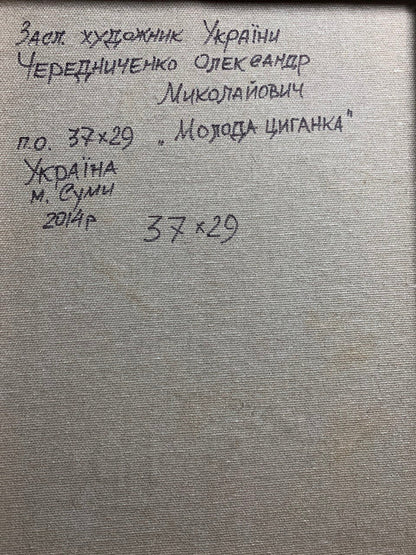 Засл. художник України
Чередниченко Олександр
Миколайович
п.о. 37×29 „Молода циганка"
Україна
м. Суми
2014р
37×29